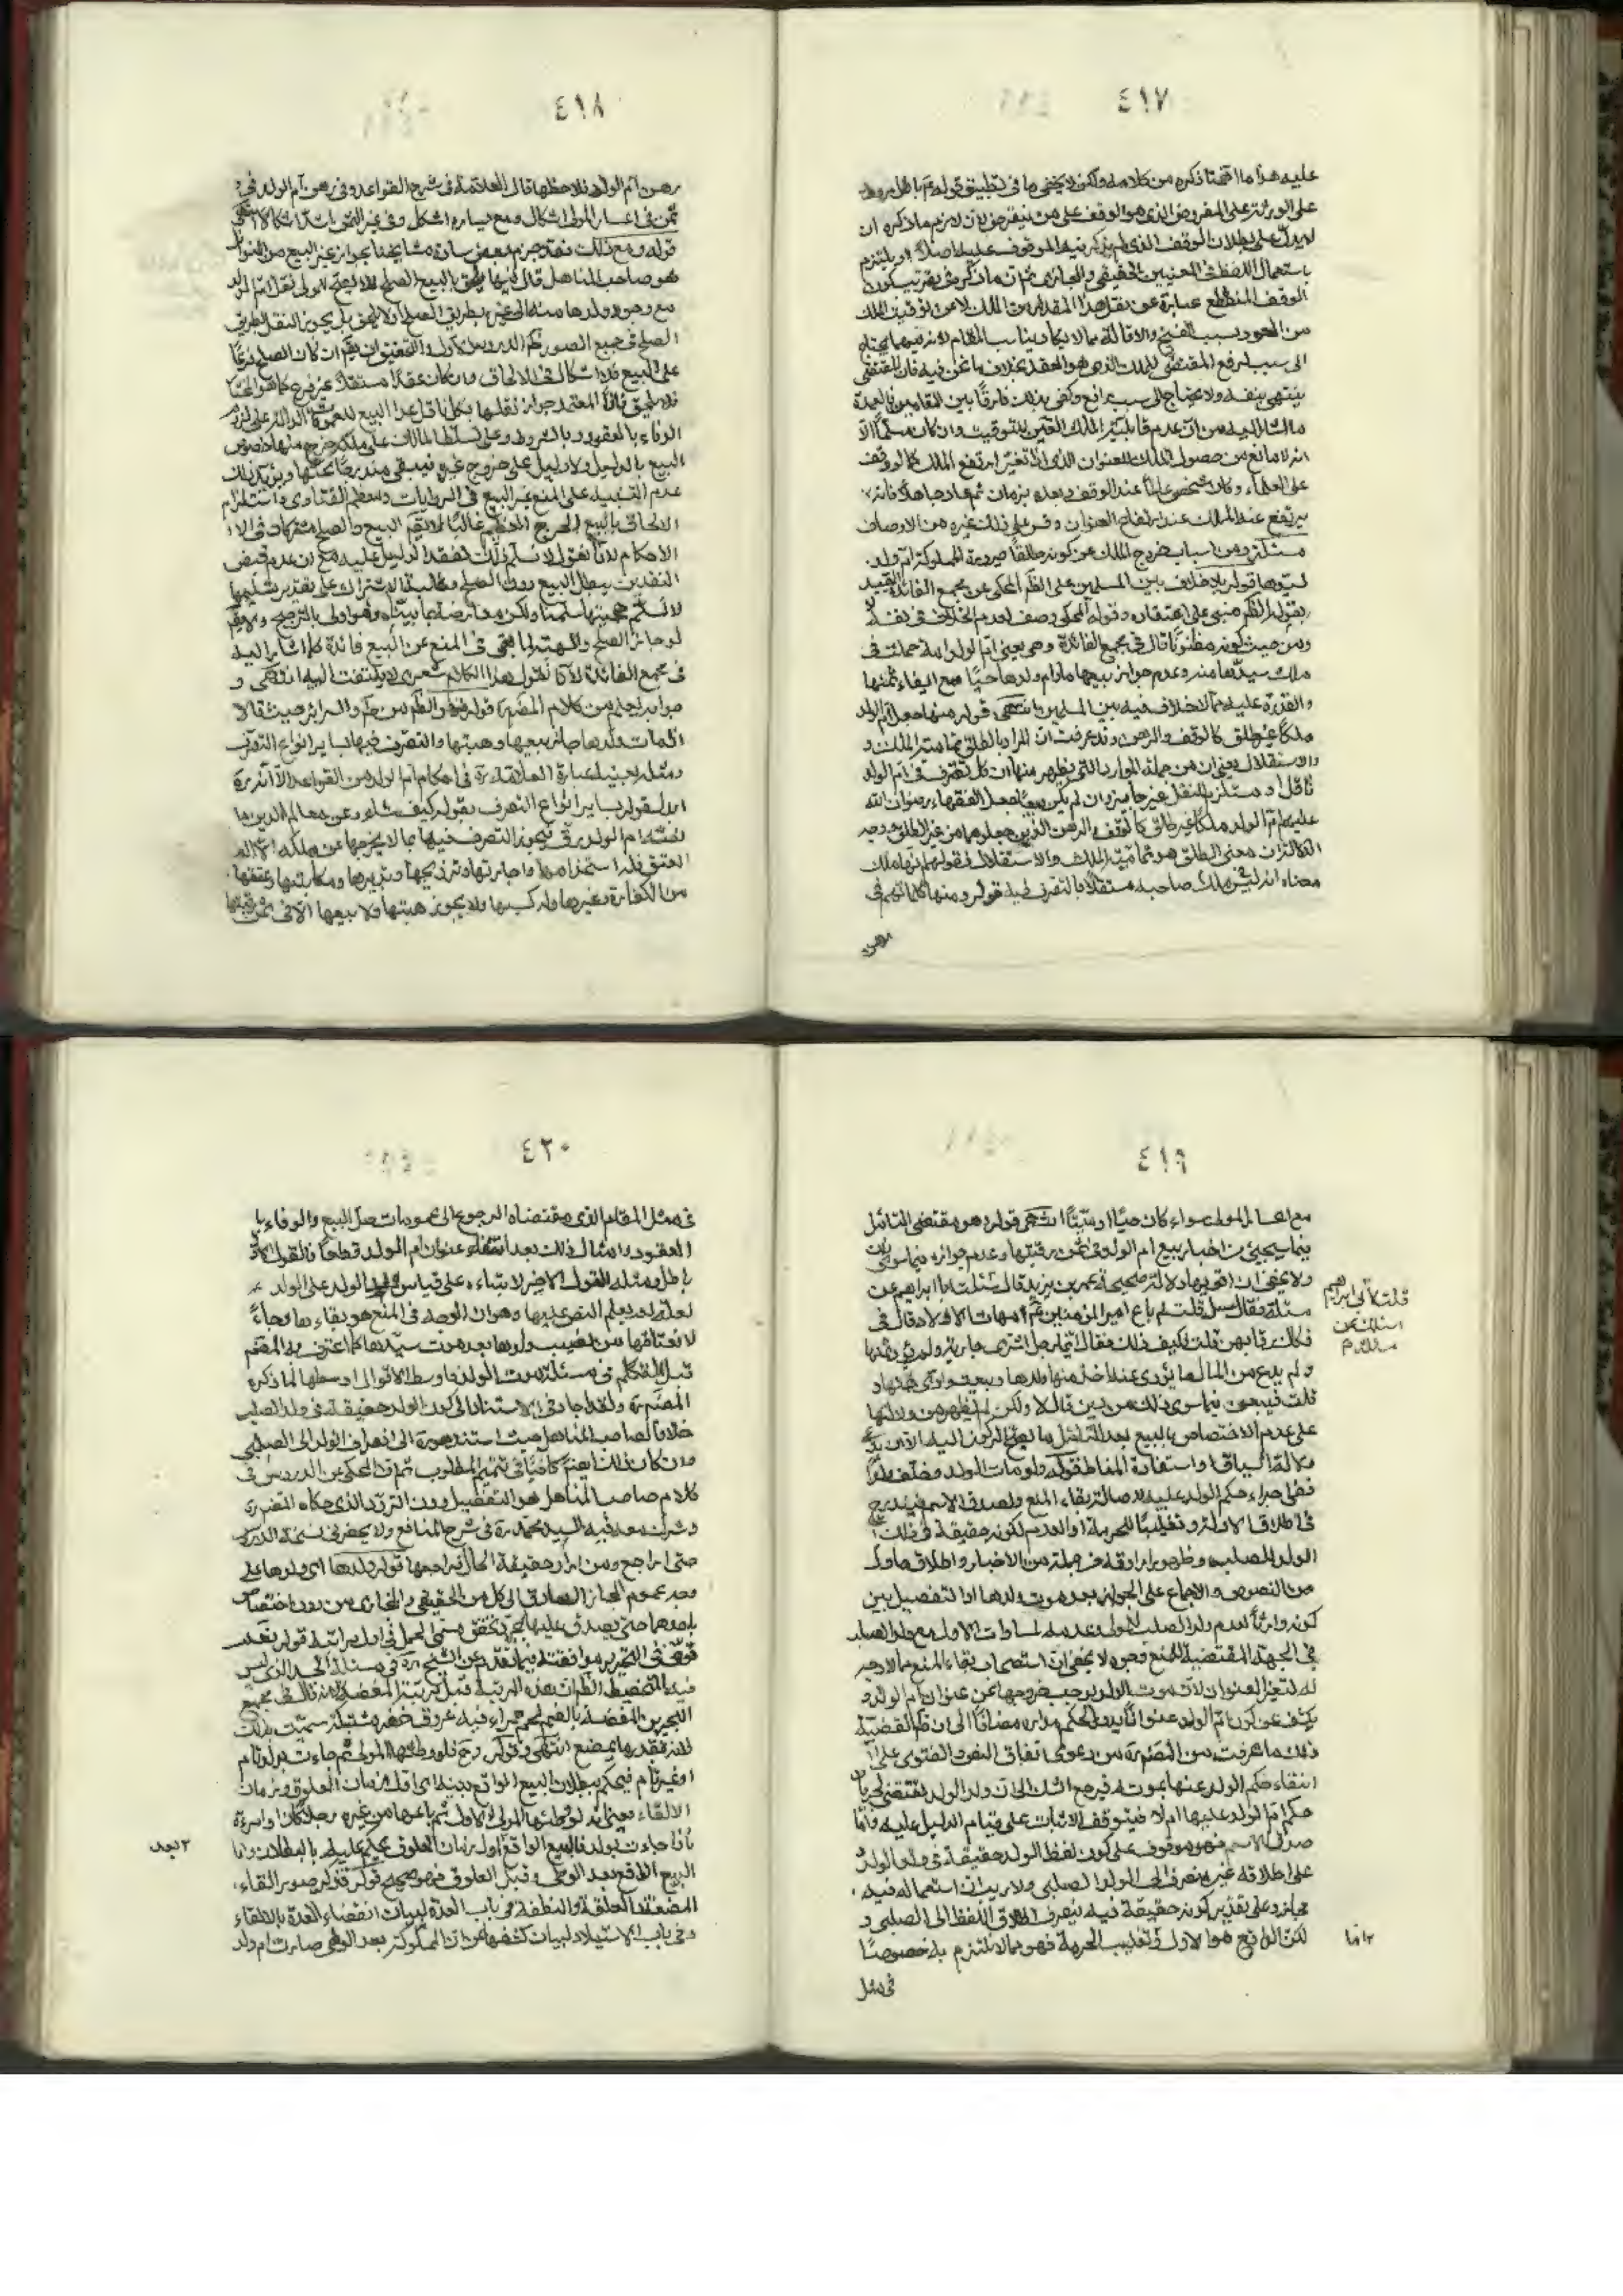 ٤١٧
عليه هذا ما اقتضا ذكره من كلامه ولكن لا يخفى ما في تطبيق قوله
على الورثة على المفروض الذي هو الوقف على من ينقرض لان لازم ما ذكره ان
لا يدل على بطلان الوقف الذي لم يذكر فيه الموقوف عليه اصلا او يلتزم
باستعمال اللفظ في المعنيين الحقيقي والمجازي ثم ان ما ذكره في تقريب كون
الوقف المنقطع عبارة عن نقل هذا المقدار من الملك لا من توقيت الملك
من العود بسبب الفسخ والاقالة مما لا يكاد يناسب المقام لانه فيهما يحتاج
الى سبب لرفع المقتضى للملك الذي هو العقد بخلاف ما نحن فيه فان المقتضى
ينتهي بنفسه ولا يحتاج الى سبب رافع وكفى بذلك فارقا بين المقامين فالعمدة
ما اشار اليه من ان عدم قابلية الملك للتوقيت وان كان مسلما الا
انه لا مانع من حصول الملك للعنوان الذي اذا تغير ارتفع الملك كما لو وقف
على العلماء وكان شخص عالما عند الوقف وبعده بزمان ثم عاد جاهلا فانه
يرتفع عنه الملك عند ارتفاع العنوان وقس على ذلك غيره من الاوصاف
مسئلة ومن اسباب خروج الملك عن كونه طلقا صيرورة المملوكة ام ولد
لسيدها قوله بلا خلاف بين المسلمين على الظاهر المحكي عن مجمع الفائدة التقييد
بقوله الظاهر مبني على اعتقاده وقوله المحكي وصف لعدم الخلاف في نفسه لا
ومن حيث كونه مظنونا قال في مجمع الفائدة وهو يعني ام الولد امة حملت في
ملك سيدها منه وعدم جواز بيعها مادام ولدها حيا مع ايفاء ثمنها
والقدرة عليه مما لا خلاف فيه بين المسلمين انتهى قوله منها جعل ام الولد
ملكا غير طلق كالوقف والرهن وقد عرفت ان المراد بالطلق تمامية الملك و
والاستقلال يعني ان من جملة الموارد التي يظهر منها ان كل تصرف في ام الولد
ناقل او مستلزم للنقل غير جايز وان لم يكن بيعا جعل الفقهاء رضوان الله
عليهم ام الولد ملكا غير طلق كالوقف والرهن الذين جعلوهما من غير الطلق ووجه
الدلالة ان معنى الطلق هو تمامية الملك والاستقلال فقولهم انها ملك
معناه انه ليس ملك صاحبه مستقلا بالتصرف فيه قوله ومنها كلماتهم في
رهن
٤١٨
رهن ام الولد فلاحظها قال العلامة في شرح القواعد وفي رهن ام الولد في
ثمن في اعسار المولى اشكال ومع يساره اشكل وفي غير الثمن اشد اشكالا انتهى
قوله ومع ذلك فقد جزم بعض سادة مشايخنا بجواز غير البيع من النواقل
هو صاحب المناهل قال فيها يلحق بالبيع الصلح فلا يصح للمولى نقل ام الولد
مع وجود ولدها منه الى غيره بطريق الصلح او لا يلحق بل يجوز النقل بطريق
الصلح في جميع الصور ظاهر الدروس الاول والتحقيق ان يقال ان كان الصلح فرعا
على البيع فلا اشكال في الالحاق وان كان عقدا مستقلا غير فرع كما هو المختار
فلا يلحق فاذا المعتمد جواز نقلها بكل ناقل عدا البيع للعمومات الدالة على لزوم
الوفاء بالعقود وبالشروط وعلى تسلط المالك على ملكه خرج منها خصوص
البيع بالدليل ولا دليل على خروج غيره فيبقى مندرجا تحتها ويؤيد ذلك
عدم التنبيه على المنع غير البيع في الروايات ومعظم الفتاوى واستلزام
الالحاق بالبيع الحرج العظيم غالبا لا يقال البيع والصلح مشتركان في الا
الاحكام لانا نقول لا نسلم ذلك لفقد الدليل عليه مع ان عدم قبض
النقدين يبطل البيع دون الصلح وغالبية الاشتراك على تقدير تسليمها
لا نسلم حجيتها سلمنا ولكن معارضة بما بيناه وهو اولى بالترجيح ولا يقال
لو جاز الصلح والهبة لما بقى في المنع عن البيع فائدة كما اشار اليه
في مجمع الفائدة لانا نقول هذا الكلام شعري لا يلتفت اليه انتهى و
جوابه يعلم من كلام المصنف قوله
امهات ولدها جاز بيعها وهبتها والتصرف فيها بساير انواع التصرف
ومثله بعينه عبارة العلامة في احكام ام الولد من القواعد الا انه
ابدل قوله بساير انواع التصرف بقوله كيف شاء وعن معالم الدين
ام الولد رق يجوز التصرف فيها بما لا يخرجها عن ملكه الا الى
العتق فله استخدامها واجارتها وتزويجها وتدبيرها ومكاتبتها وعتقها
من الكفارة وغيرها وله كسبها ولا يجوز هبتها ولا بيعها الا في ثمن رقبتها
٤١٩
مع اعسار المولى سواء كان حيا او ميتا انتهى قوله وهو مقتضى التامل
فيما سيجيئ من اخبار بيع ام الولد في ثمن رقبتها وعدم جوازه فيما سوى ذلك
ولا يخفى ان اقويها دلالة صحيحة عمر بن يزيد قال سئلت ابا ابراهيم عن
مسئلة فقال سل قلت لم باع امير المؤمنين امهات الاولاد قال في
فكاك رقابهن قلت فكيف ذلك فقال ايما رجل اشترى جارية ولم يؤد ثمنها
ولم يدع من المال ما يؤدى عنه اخذ منها ولدها وبيعت وادى ثمنها
قلت فيبعن فيما سوى ذلك من دين قال لا ولكن لم يظهر من دلالتها
على عدم الاختصاص بالبيع بعد التامل ما يصح الركون اليه
دلالة السياق واستفادة المناط قوله ولو مات الولد وخلف ولدا
ففي اجراء حكم الولد عليه لاصالة بقاء المنع ولصدق الاسم فيندرج
في اطلاق الادلة وتغليبا للحرمة او العدم لكونه حقيقة في ذلك
الولد للصلب وظهور ارادته في جملة من الاخبار واطلاق ما دل
من النصوص والاجماع على الجواز بعد موت ولدها او التفصيل بين
كونه وارثا لعدم ولد الصلب للمولى وعدمه لمساواة الاول مع ولد الصلب
في الجهة المقتضية للمنع فوجوه لا يخفى ان استصحاب بقاء المنع مما لا وجه
له لتغير العنوان لان موت الولد يوجب خروجها عن عنوان ام الولد و
يكشف عن كون ام الولد عنوانا يدور الحكم مداره مضافا الى ان قضية
ذلك ما عرفت من المصنف من دعوى اتفاق النص والفتوى على
انتفاء حكم الولد عنها بموته فيرجع الشك الى ان ولد الولد يقتضي جريان
حكم ام الولد عليها ام لا فيتوقف الاثبات على قيام الدليل عليه واما
صدق الاسم فهو موقوف على كون لفظ الولد حقيقة في ولد الولد
على اطلاقه غير منصرف الى الولد الصلبي ولا ريب ان استعماله فيه
مجاز وعلى تقدير كونه حقيقة فيه ينصرف اطلاق اللفظ الى الصلبي و
لكن الواقع هو الاول وتغليب الحرمة فهو مما لا نلتزم به خصوصا
في مثل
قلت لابي ابراهيم
اسئلك عن
٢ اما
٤٢٠
في مثل المقام الذي مقتضاه الرجوع الى عمومات حل البيع والوفاء با
العقود وامثال ذلك بعد انتفاء عنوان ام الولد قطعا فالقول الاول
باطل ومثله القول الاخير لابتناءه على قياس ولد الولد على الولد
لعلة لم يعلم النص عليها وهو ان الوجه في المنع هو بقاءها رجاء
لانعتاقها من نصيب ولدها بعد موت سيدها كما اعترف به المصنف
قبل التكلم في مسئلة موت الولد فاوسط الاقوال اوسطها لما ذكره
المصنف ولقد اجاد في الاستناد الى كون الولد حقيقة في ولد الصلب
خلافا لصاحب المناهل حيث استند هو الى انصراف الولد الى الصلبي
وان كان ذلك ايضا كافيا في تتميم المطلوب ثم ان المحكي عن الدروس في
كلام صاحب المناهل هو التفصيل دون التردد الذي حكاه المصنف
وشارك معه فيه السيد محمد في شرح المنافع ولا يحضرني نسخة الدروس
حتى اراجع ومن اراد حقيقة الحال فليراجعها قوله ولدها اي ولدها على
وجه عموم المجاز الصادق الى كل من الحقيقي والمجازي من دون اختصاص
باحدهما حتى يصدق عليها بمجرد تحقق مسمى الحمل في اول مراتبه قوله نعم
توقف في التحرير موافقته فيما تقدم عن الشيخ في مسئلة الجسد الذي ليس
فيه التخطيط الظاهر ان هذه المرتبة قبل مرتبة المضغة لانه قال في مجمع
البحرين المضغة بالضم لحم حمراء فيه عروق خضر مشتبكة سميت بذلك
لانه بقدر ما يمضغ انتهى وقوله فلو وطئها المولى ثم جاءت بولد تام
او غير تام فيحكم ببطلان البيع الواقع بينه اي اول زمان العلوق وزمان
الالقاء يعني انه لو وطئها المولى الاول ثم باعها من غيره رجلا كان او امرءة
فاذا جاءت بولد فالبيع الواقع اول زمان العلوق يحكم عليه بالبطلان واما
البيع الواقع بعد الوطي وقبل العلوق فهو صحيح قوله فذكر صور القاء
المضغة والعلقة والنطفة في باب العدة لبيان انقضاء العدة بالالقاء
وفي باب الاستيلاد لبيان كشفها عن ان المملوكة بعد الوطي صارت ام ولد
٢ بعد